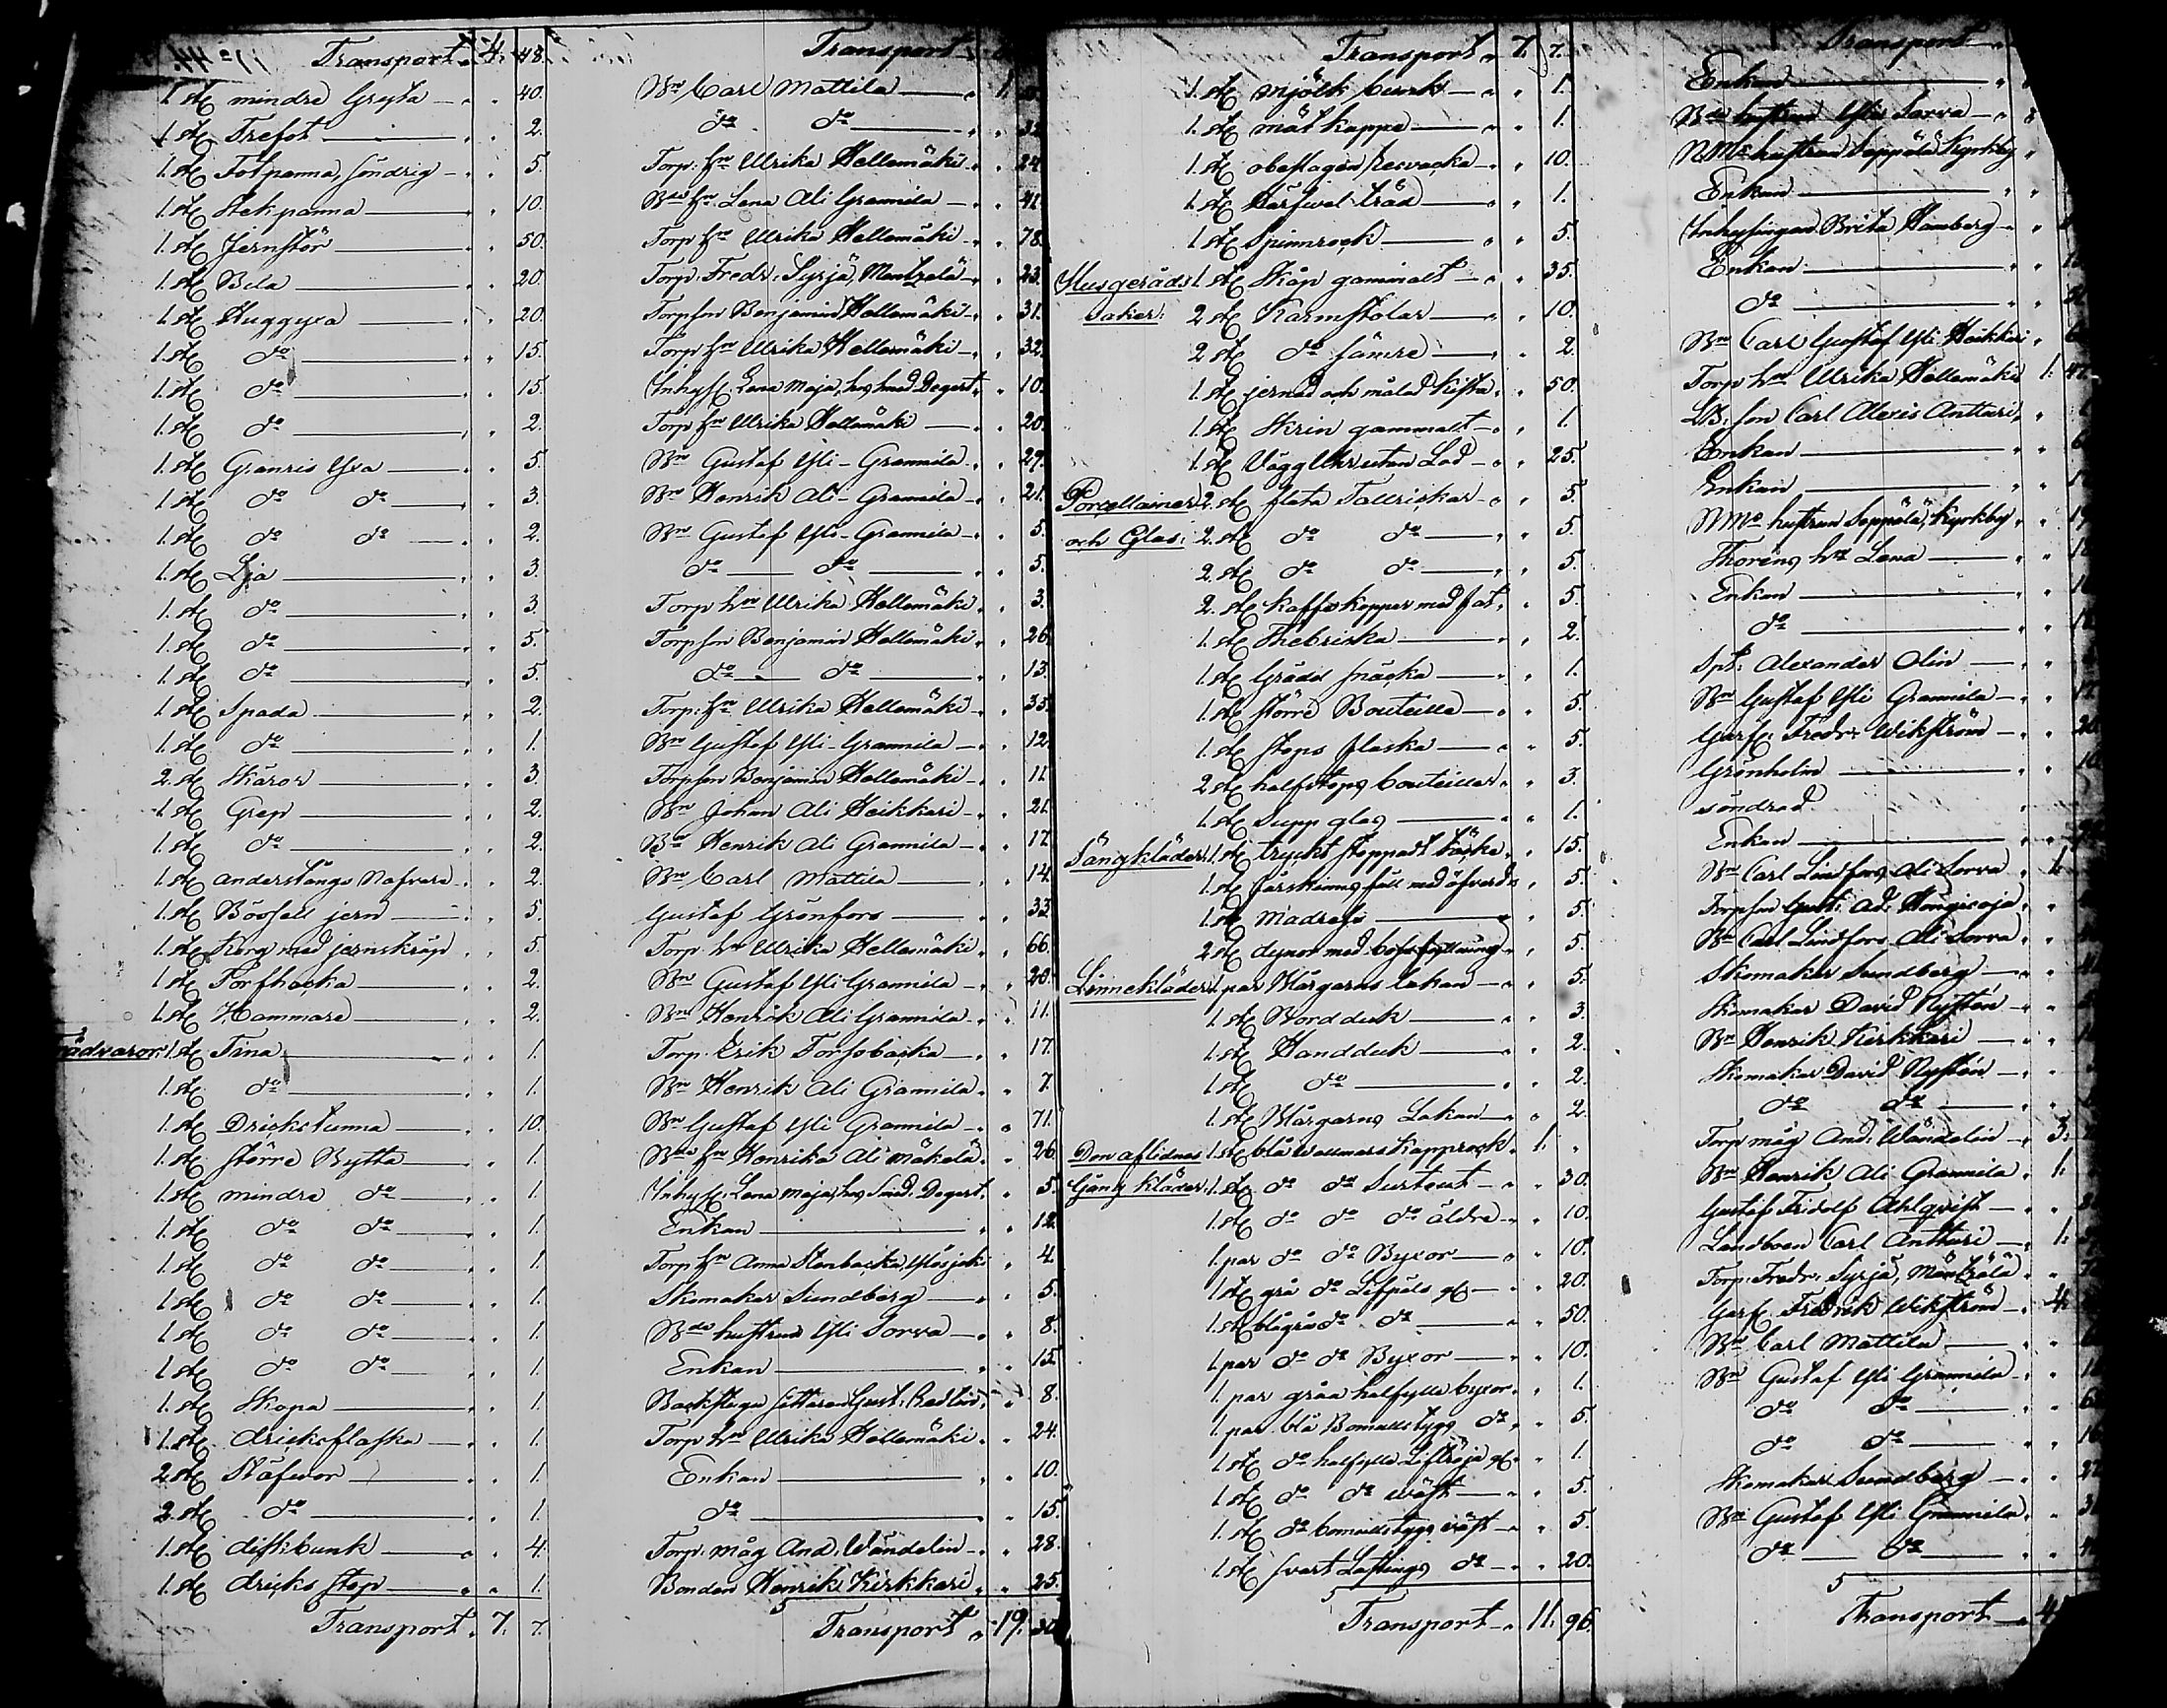 Transport 4. 48.
1. st mindre Gryta 40.
1. st Trefot 2.
1. st Fotpanna, söndrig 5.
1. st Stekpanna 10.
1. st Jernstör 50.
1. st Bila 20.
1. st Huggyxa 20.
1. st do 15.
1. st do 15.
1. st do 2.
1. st Granris Yxa 5.
1. st do do 3.
1. st do do 2.
1. st Lja 3.
1. st do 3.
1. st do 5.
1. st do 5.
1. st Spada 2.
1. st do 1.
2. st Skäror 3.
1. st Grep 2.
1. st do 2.
1. st anderstångs Nafvare 2.
1. st jern 5.
1. st Korg med jernskräp 5.
1. st Torfhacka 2.
1. st Hammare 2.
rädvaror: 1. st Tina 1.
1. st do 1.
1. st Drickstunna 10.
1. st större Bytta 1.
1. st mindre do 1.
1. st do do 1.
1. st do do 1.
1. st do do 1.
1. st do do 1.
1. st do do 1.
1. st Skopa 1.
1. st dricksflaska 1.
2. st Stäfvor 1.
2. st do 1.
1. st diskbunk 4.
1. st dricks stop 1.
Transport 7. 7.
Transport
Bn Carl Mattila 1.
do do
Torp. hn Ulrika Hellemäki 24
Bde hn Lena Ali Grannila 41.
Torp hn Ulrika Hellemäki 78.
Torp. Fredr. Syrjä, Mentzälä 23.
Torpson Benjamin Hellemäki 31.
Torp hn Ulrika Hellemäki 32.
Inhys. Lena Maja, hos smed Degert 10.
Torp hn Ulrika Hellemäki 20.
Bn Gustaf Yli-Grannila 29.
Bn Henrik Ali-Grannila 21.
Bn Gustaf Yli-Grannila 5.
do do 5.
Torp hn Ulrika Hellemäki 3.
Torpson Benjamin Hellemäki 26.
do do 13.
Torp. hn Ulrika Hellemäki 35.
Bn Gustaf Yli-Grannila 12.
Torpson Benjamin Hellemäki 11.
Bn Johan Ali Heikkari 21.
Bn Henrik Ali Grannila 17.
Bn Carl Mattila 14.
Gustaf Grönfors 33.
Torp hn Ulrika Hellemäki 66.
Bn Gustaf Yli Grannila 20.
Bn Henrik Ali Grannila 11.
Torp. Erik Torfsbacka 17.
Bn Henrik Ali Grannila 7.
Bn Gustaf Yli Grannila 71.
Bde hn Henrika Ali Mäkelä 26.
Inhys. Lena Maja, hos Smed. Degert 5.
Enkan 12.
Torp hn Anna Stenbacka, 4.
Skomakar Sundberg 5.
Bde hustrun Yli Sorva 8.
Enkan 15.
Backstugusittaren Gust. Redlin 8.
Torp hn Ulrika Hellemäki 24.
Enkan 10.
do 15.
Torp. måg And. Wändelin 28.
Bonden Henrik Kirkkari 25.
Transport 19. 30
Transport 7. 7.
1. st mjölk bunk 1.
1. st måt kappe 1.
1. st obeslagen 10.
1. st träd 1.
1. st Spinnrock 5.
Husgeråds 1. st Skåp gammalt 35.
saker: 2 st Karmstolar 10.
2 st do sämre 2.
1. st jernad och målad Kista 50.
1. st Skrin gammalt 1.
1. st Vägg Uhr utan Lod 25.
Porcellainer 2. st flata Tallrickar 5.
och Glas: 2. st do do 5.
2. st do do 5.
2. st kaffekoppar med fat 5.
1. st Thebricka 2.
1. st Grädd snäcka 1.
1. st större Bouteille 5.
1. st stops flaska 5.
2 st halfstops bouteiller 3.
1. st Supp glas 1.
Sängkläder: 1. st tryckt stoppadt täcke 15.
1. st fårskinns fäll med öfverd 5.
1. st Madrass 5.
2 st dynor med 5.
Linnekläder: 1 par Blårgarns lakan 5.
1. st Bordduk 3.
1. st Handduk 2.
1. st do 2.
1. st Blårgarns Lakan 2.
Den aflidnes 1. st blå wallmars Kapprock 1.
Gång kläder: 1. st do do Surtout 30.
1. st do do do äldre 10.
1. par do do Byxor 10.
1. st grå do Lifpels 20.
1. st blågrå do do 50.
1. par do do Byxor 10.
1. par gråa halfylle byxor 1.
1. par blå Bomullstygs do 5.
1. st do halfylle Liftröja 1.
1. st do do wäst 5.
1. st do bomullstygs wäst 5.
1. st svart Lastings do 20.
Transport 11. 96.
Transport
Enkan
Bde hustrun Yli Sorva
hustrun Seppälä, Kyrkby
Enkan
Inhysingen Brita Hamberg
Enkan
do
Bn Carl Gustaf Yli Heikkari
Torp hn Ulrika Hellemäki 1. 47.
son Carl Alexis Anttari
Enkan
Enkan
hustrun Seppälä, Kyrkby
Thoréns hn Lena
Enkan
do
Spt: Alexander Olin
Bn Gustaf Yli Grannila
Garf. Fredr. Wikström
Grönholm
söndrad
Enkan
Bn Carl Lindfors, Ali Sorva
Torpson Gust. Ad.
Bn Carl Lindfors Ali Sorva
Skomakar Sundberg
Skomakar David Nystén
Bn Henrik Kirkkari
Skomakar David Nystén
do do
Torp måg And. Wändelin 3.
Bn Henrik Ali Grannila 1.
Gustaf Fridolf Ahlqvist
Landboen Carl Anttari 1.
Torp. Fredr. Syrjä, Mentzälä
Garf. Fredrik Wikström 4.
Bn Carl Mattila
Bn Gustaf Yli Grannila
do do
do do
Skomakar Sundberg
Bn Gustaf Yli Grannila
do do
Transport